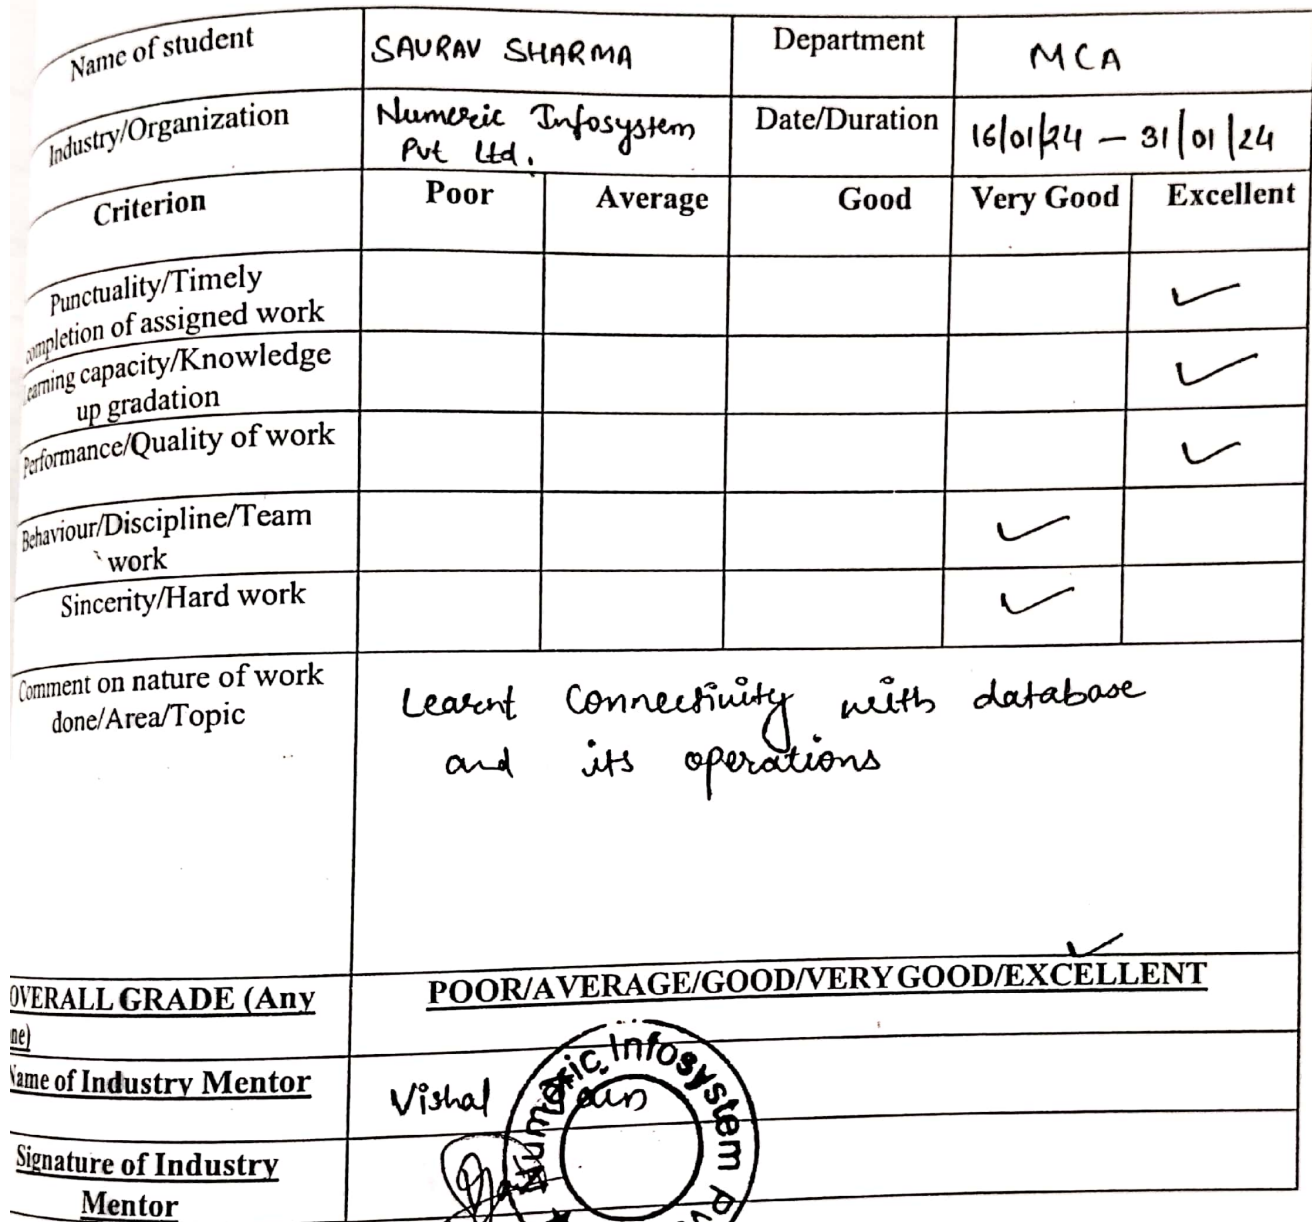 Name of student SAURAV SHARMA Department MCA
Industry/Organization Numeric Infosystem Date/Duration 16/01/24 – 31/01/24
Pvt Ltd.
Criterion Poor Average Good Very Good Excellent
Punctuality/Timely ✓
ompletion of assigned work
earning capacity/Knowledge ✓
up gradation
Performance/Quality of work ✓
Behaviour/Discipline/Team ✓
work
Sincerity/Hard work ✓
Comment on nature of work
done/Area/Topic
Learnt Connectivity with database
and its operations
✓
OVERALL GRADE (Any POOR/AVERAGE/GOOD/VERY GOOD/EXCELLENT
ne)
Name of Industry Mentor Vishal
Numeric Infosystem Pv
Signature of Industry
Mentor